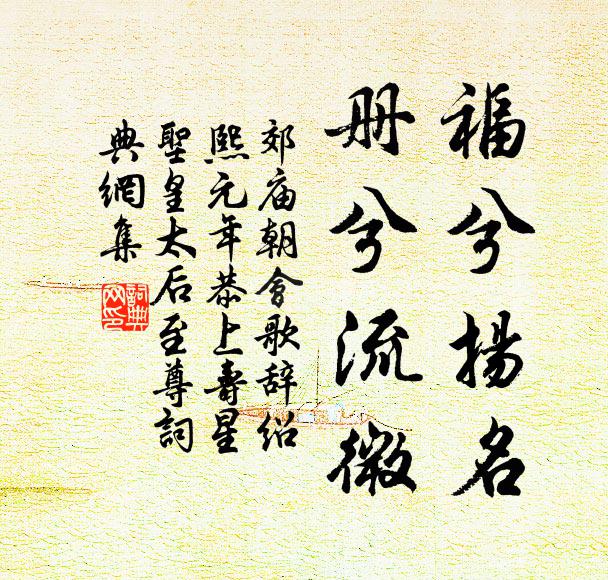 福兮揚名
册兮流徽
郊庙朝會歌辞紹
熙元年恭上壽星
聖皇太后至尊詞
典網集
詞典
网印